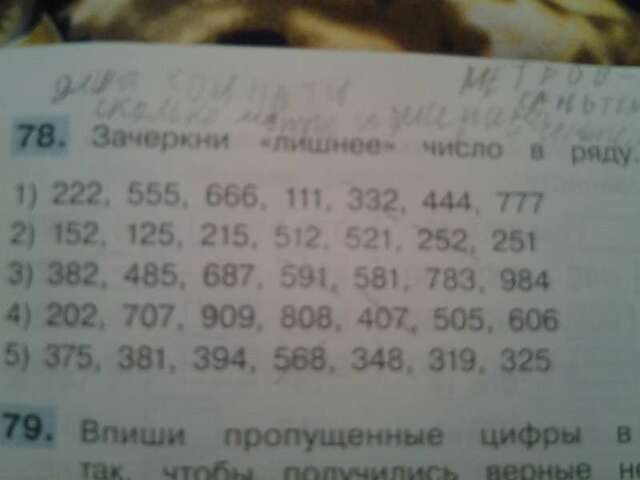 МЕТРОВ
78. Зачеркни «лишнее» число в ряду.
1) 222, 555, 666, 111, 332, 444, 777
2) 152, 125, 215, 512, 521, 252, 251
3) 382, 485, 687, 591, 581, 783, 984
4) 202, 707, 909, 808, 407, 505, 606
5) 375, 381, 394, 568, 348, 319, 325
79. Впиши пропущенные цифры в
так, чтобы получились верные не